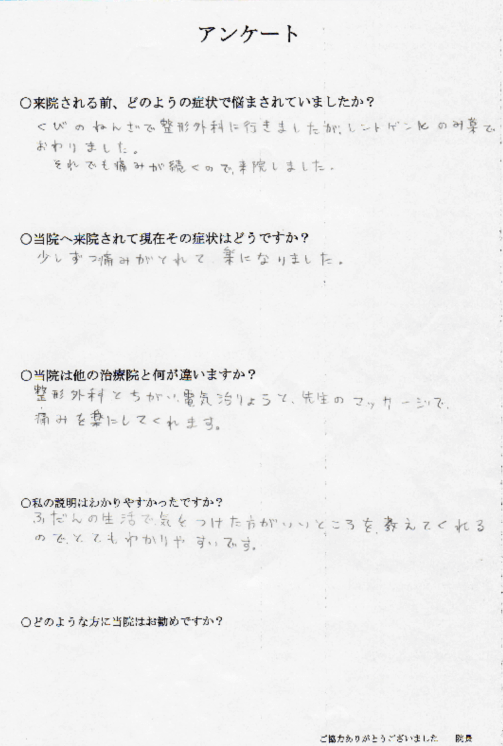 アンケート
○来院される前、どのようの症状で悩まされていましたか？
くびのねんざで整形外科に行きましたが、レントゲンとのみ薬で
おわりました。
それでも痛みが続くので、来院しました。
○当院へ来院されて現在その症状はどうですか？
少しずつ痛みがとれて、楽になりました。
○当院は他の治療院と何が違いますか？
整形外科とちがい、電気治りょうと、先生のマッサージで、
痛みを楽にしてくれます。
○私の説明はわかりやすかったですか？
ふだんの生活で、気をつけた方がいいところを、教えてくれる
ので、とてもわかりやすいです。
○どのような方に当院はお勧めですか？
ご協力ありがとうございました　院長